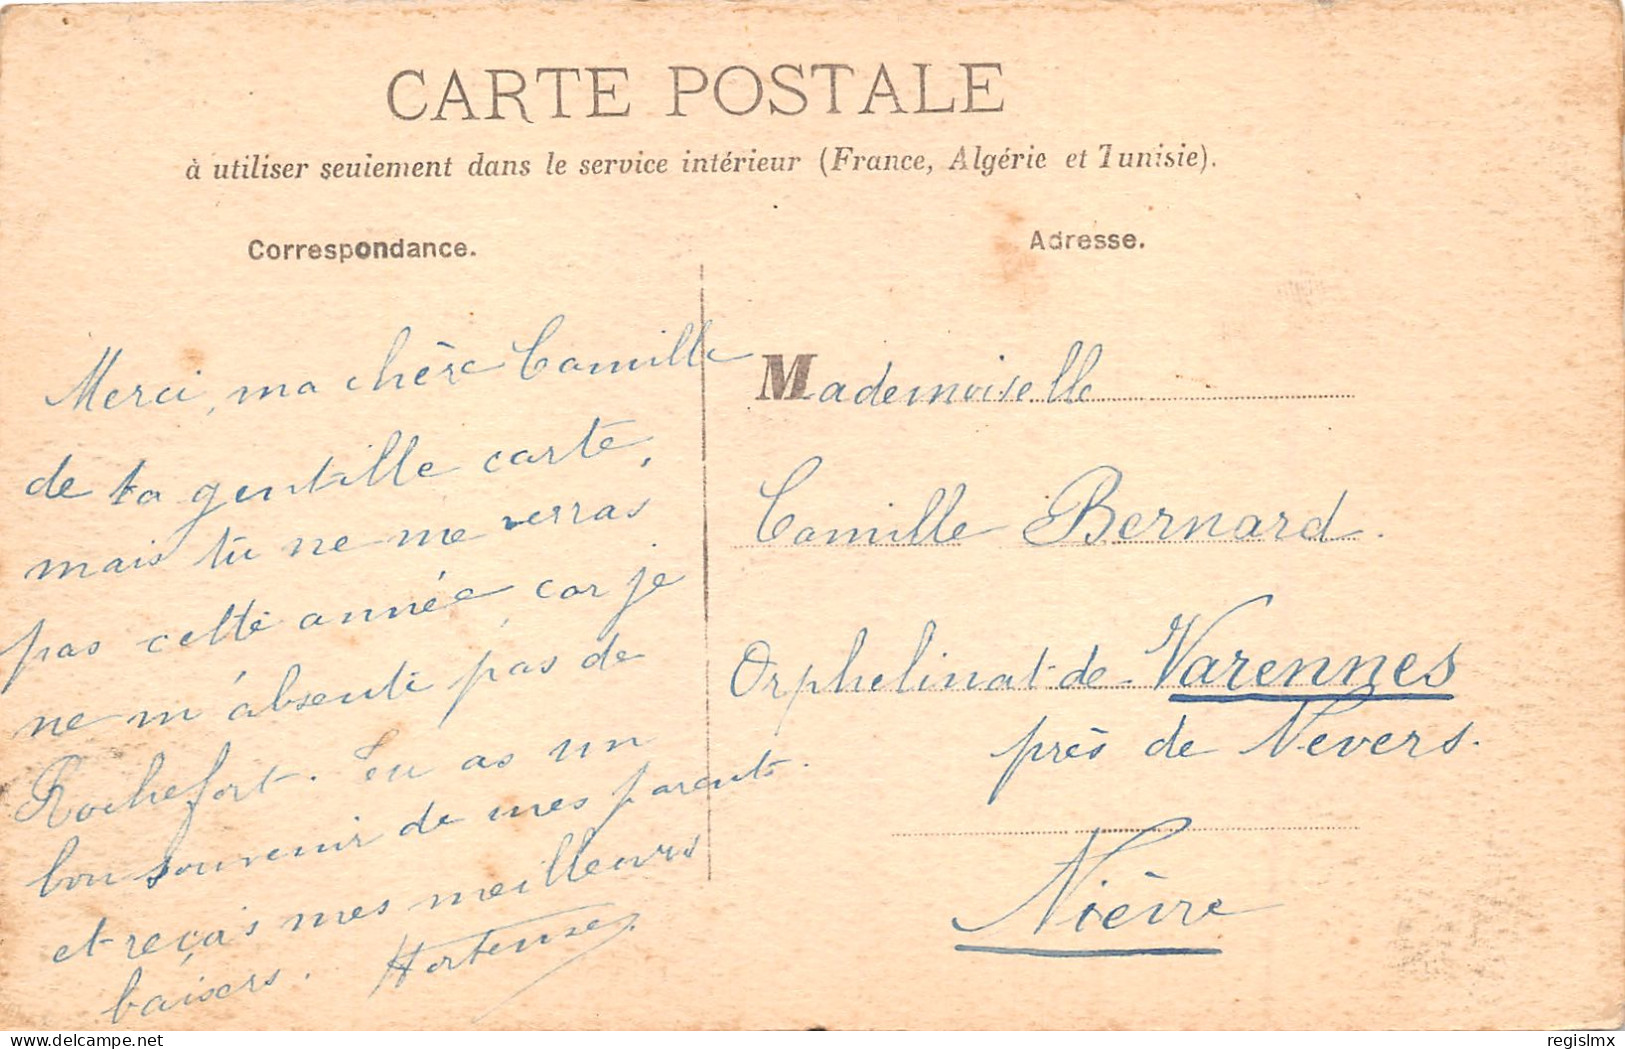 CARTE POSTALE
à utiliser seulement dans le service intérieur (France, Algérie et Tunisie).
Correspondance.
Adresse.
Merci, ma chère Camille
de ta gentille carte,
mais tu ne me verras
pas cette année, car je
ne m'absente pas de
Rochefort. Tu as un
bon souvenir de mes parents.
et reçois mes meilleurs
baisers. Hortense.
Mademoiselle
Camille Bernard.
Orphelinat de Varennes
près de Nevers.
Nièvre
delcampe.net
regislmx